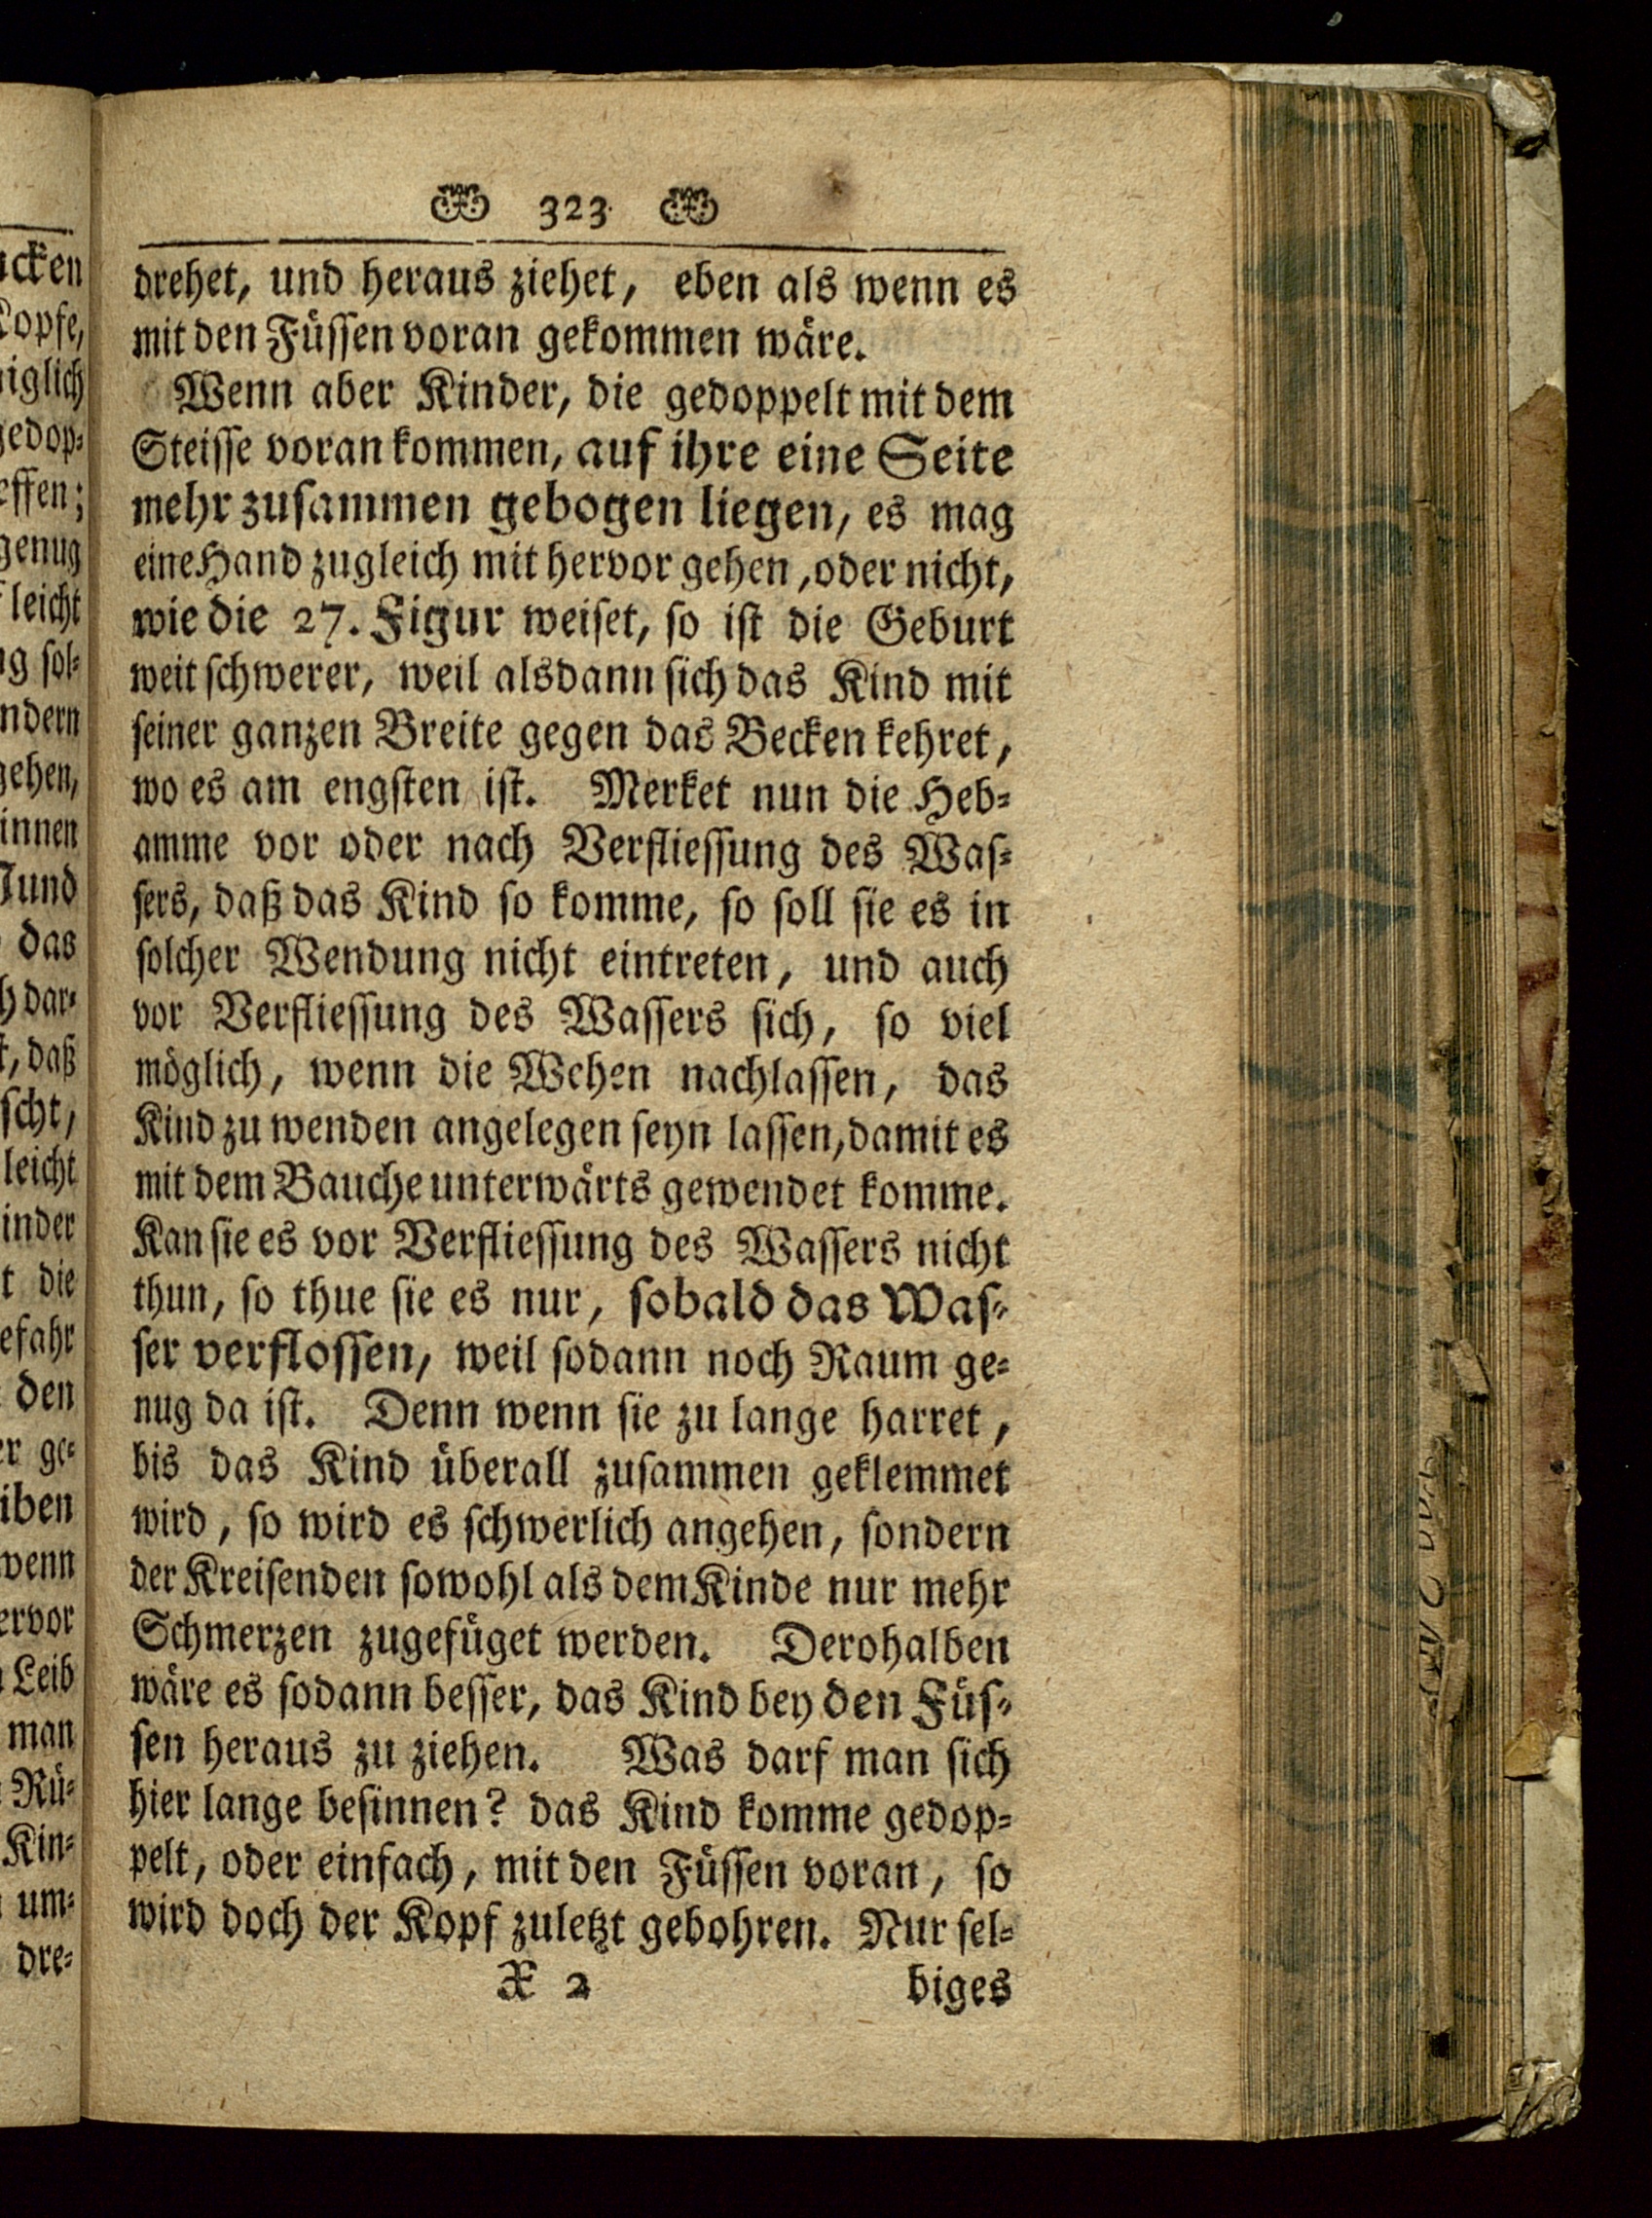 323.
drehet, und heraus ziehet, eben als wenn es
mit den Füssen voran gekommen wäre.
Wenn aber Kinder, die gedoppelt mit dem
Steisse voran kommen, auf ihre eine Seite
mehr zusammen gebogen liegen, es mag
eine Hand zugleich mit hervor gehen, oder nicht,
wie die 27. Figur weiset, so ist die Geburt
weit schwerer, weil alsdann sich das Kind mit
seiner ganzen Breite gegen das Becken kehret,
wo es am engsten ist. Merket nun die Heb-
amme vor oder nach Verfliessung des Was-
sers, daß das Kind so komme, so soll sie es in
solcher Wendung nicht eintreten, und auch
vor Verfliessung des Wassers sich, so viel
möglich, wenn die Wehen nachlassen, das
Kind zu wenden angelegen seyn lassen, damit es
mit dem Bauche unterwärts gewendet komme.
Kan sie es vor Verfliessung des Wassers nicht
thun, so thue sie es nur, sobald das Was-
ser verflossen, weil sodann noch Raum ge-
nug da ist. Denn wenn sie zu lange harret,
bis das Kind überall zusammen geklemmet
wird, so wird es schwerlich angehen, sondern
der Kreisenden sowohl als dem Kinde nur mehr
Schmerzen zugefüget werden. Derohalben
wäre es sodann besser, das Kind bey den Füs-
sen heraus zu ziehen. Was darf man sich
hier lange besinnen? das Kind komme gedop-
pelt, oder einfach, mit den Füssen voran, so
wird doch der Kopf zuletzt gebohren. Nur sel-
X 2 biges